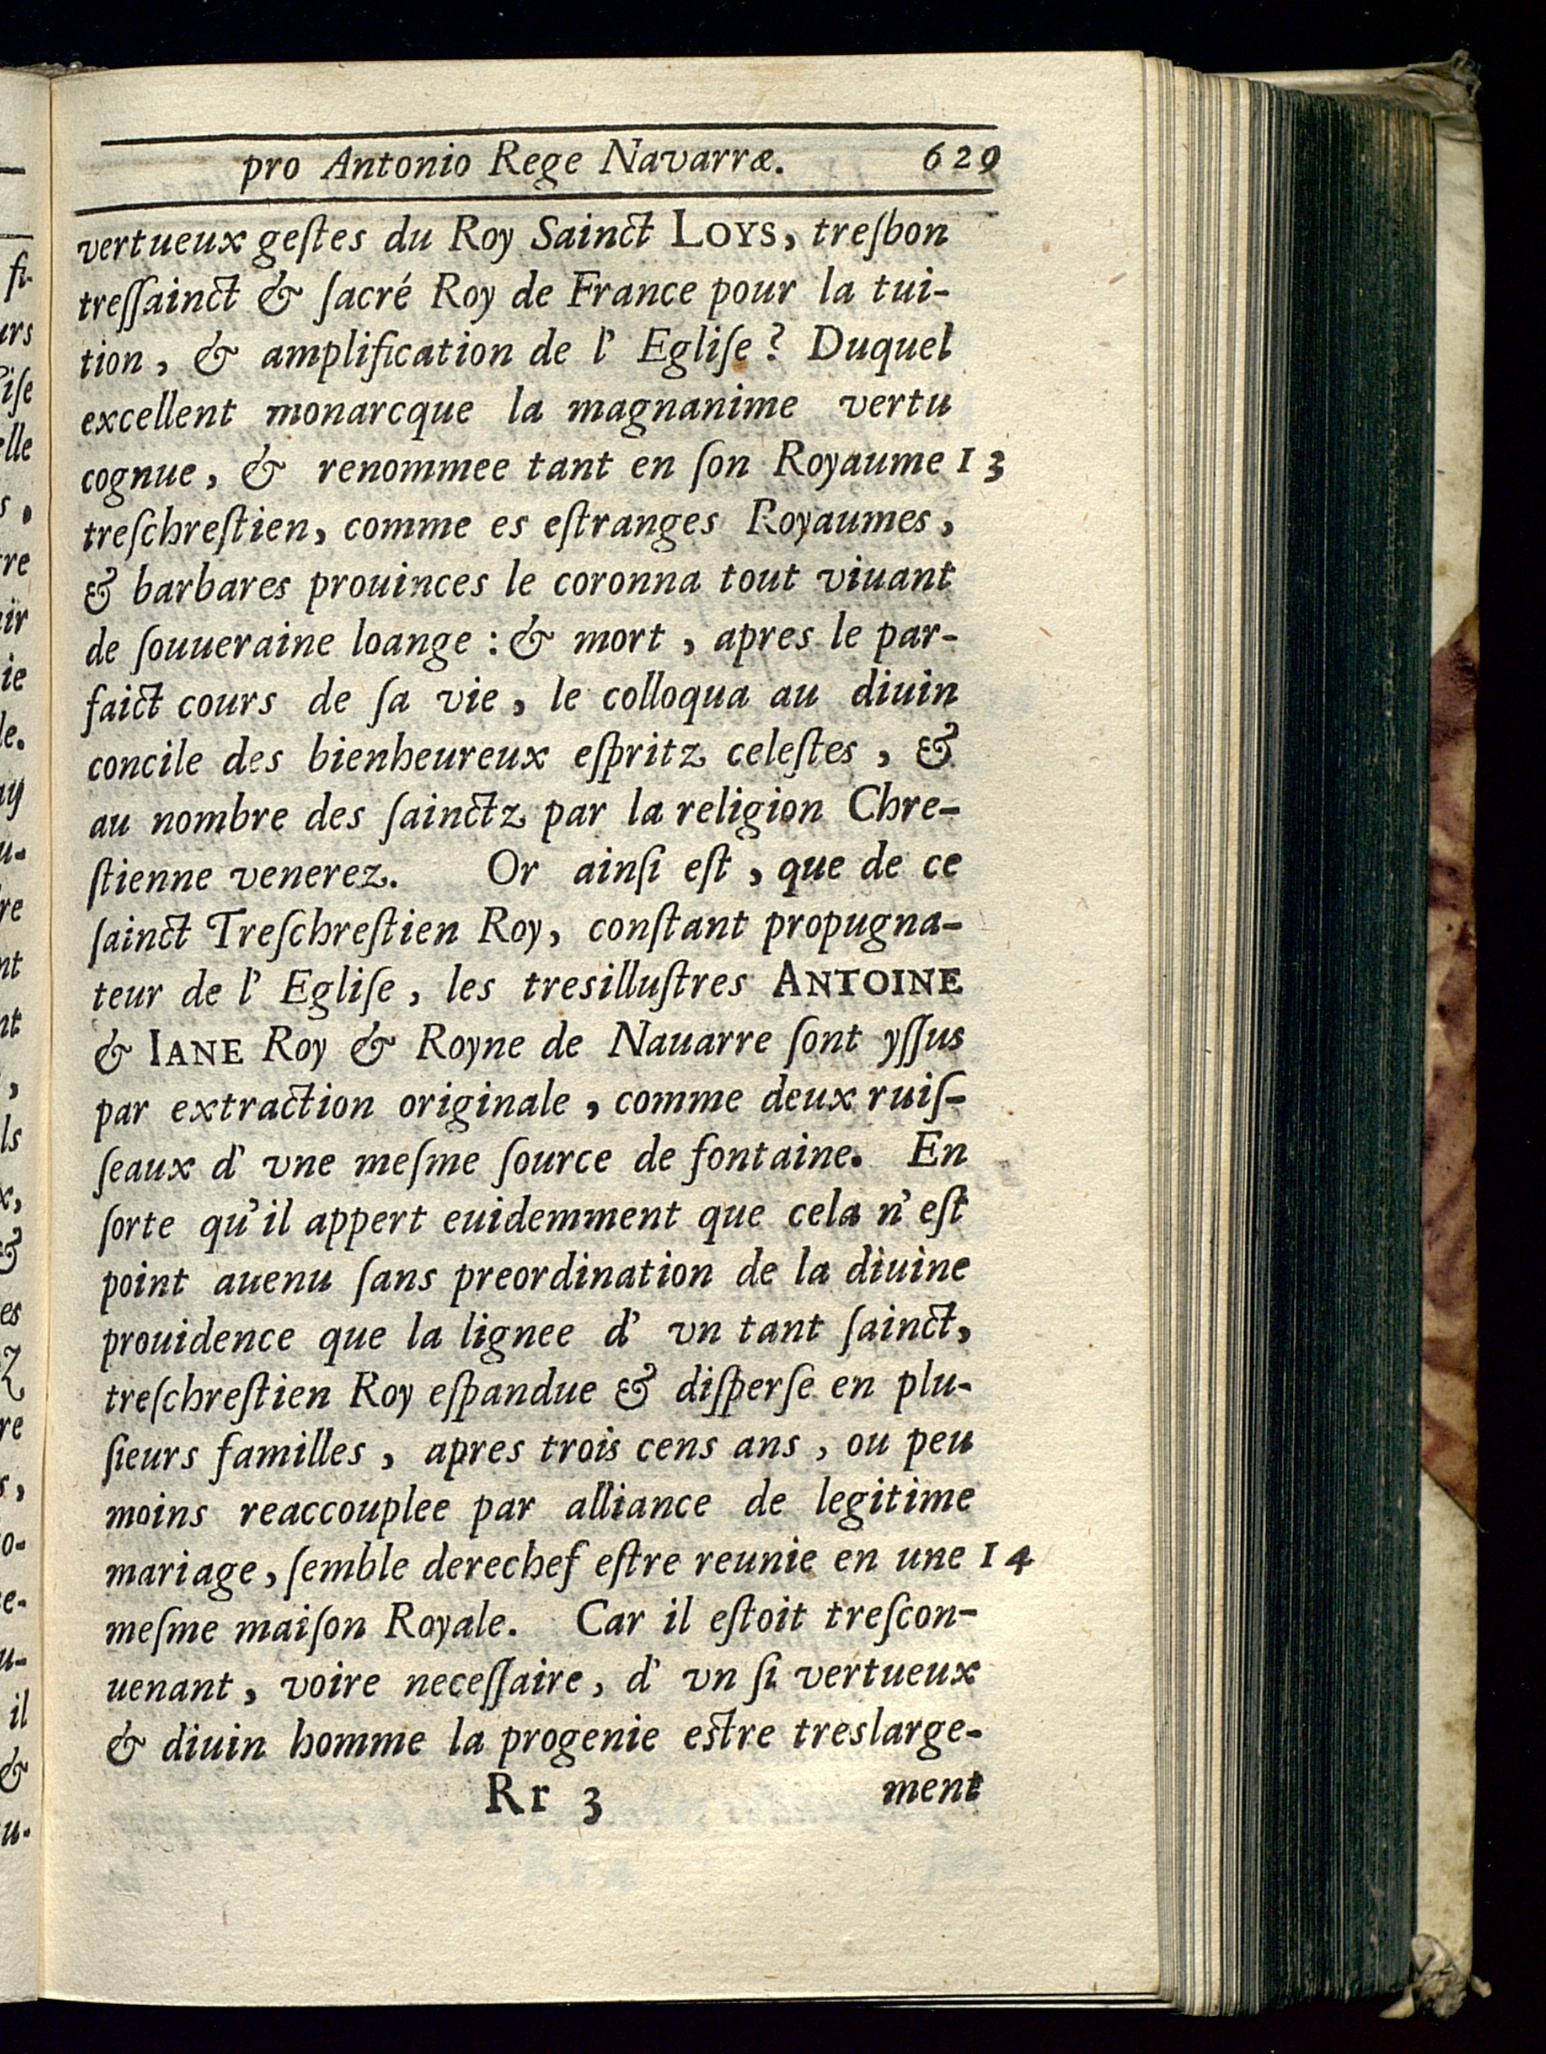 pro Antonio Rege Navarræ. 629
vertueux geſtes du Roy Sainct LOYS, treſbon
treſſainct & ſacré Roy de France pour la tui-
tion, & amplification de l' Egliſe? Duquel
excellent monarcque la magnanime vertu
cognue, & renommee tant en ſon Royaume 13
treſchreſtien, comme es eſtranges Royaumes,
& barbares prouinces le coronna tout viuant
de ſouueraine loange: & mort, apres le par-
faict cours de ſa vie, le colloqua au diuin
concile des bienheureux eſpritz celeſtes, &
au nombre des ſainctz par la religion Chre-
ſtienne venerez. Or ainſi eſt, que de ce
ſainct Treſchreſtien Roy, conſtant propugna-
teur de l' Egliſe, les tresilluſtres ANTOINE
& IANE Roy & Royne de Nauarre ſont yſſus
par extraction originale, comme deux ruiſ-
ſeaux d' vne meſme ſource de fontaine. En
ſorte qu'il appert euidemment que cela n' eſt
point auenu ſans preordination de la diuine
prouidence que la lignee d' vn tant ſainct,
treſchreſtien Roy eſpandue & diſperſe en plu-
ſieurs familles, apres trois cens ans, ou peu
moins reaccouplee par alliance de legitime
mariage, ſemble derechef eſtre reunie en une 14
meſme maiſon Royale. Car il eſtoit treſcon-
uenant, voire neceſſaire, d' vn ſi vertueux
& diuin homme la progenie eſtre treslarge-
Rr 3 ment